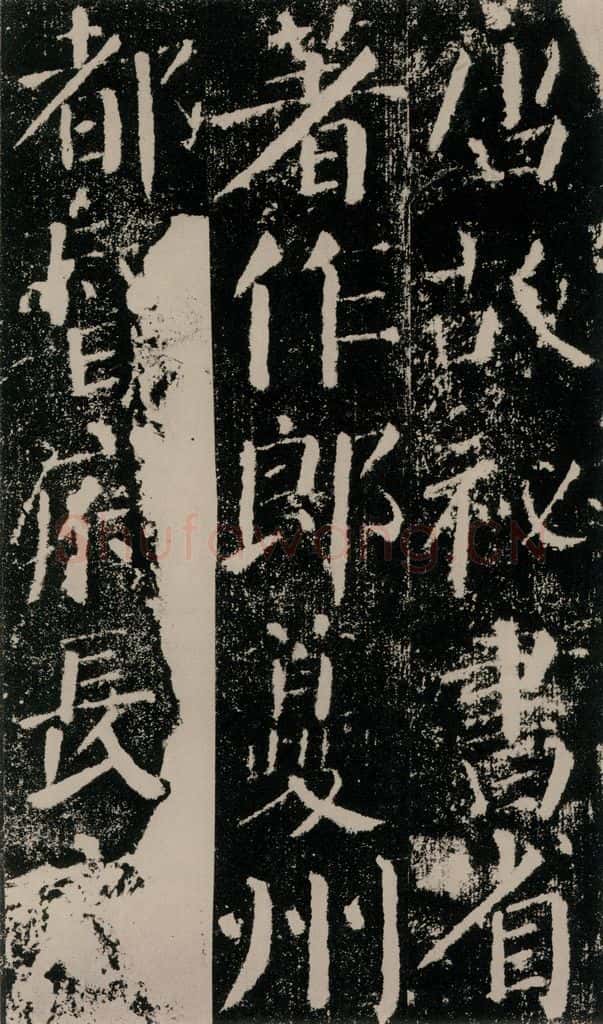 唐故祕書省
著作郎夔州
都督府長史
Shufawang.CN